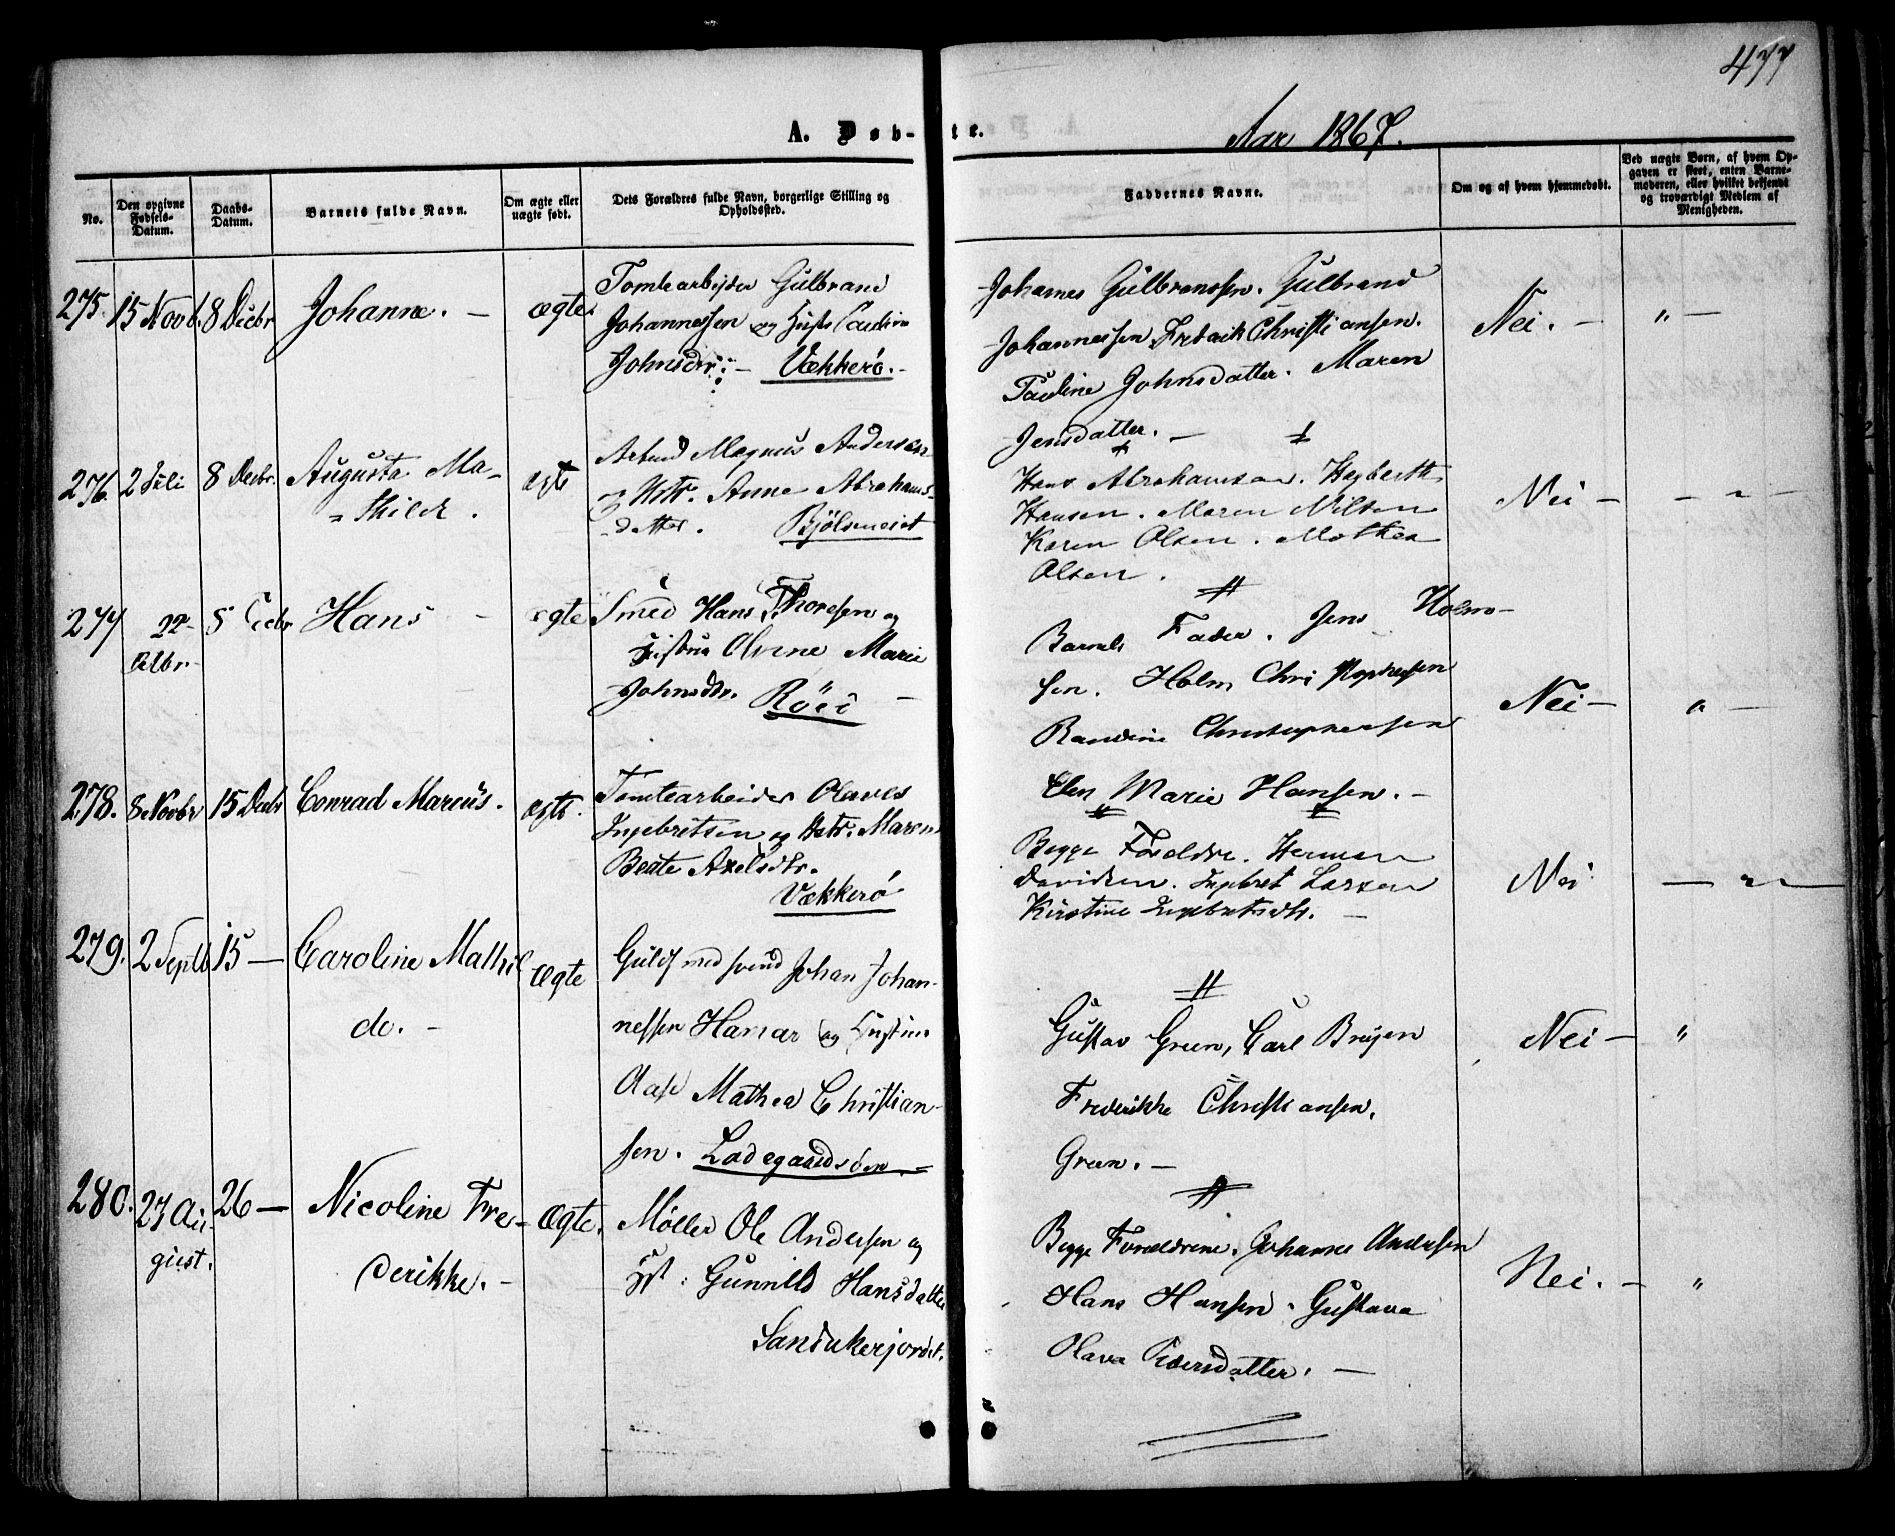 477
A. Døb-te.
Aar 1867.
No.
Den opgivne Fødsels-Datum.
Daabs-Datum.
Barnets fulde Navn.
Om ægte eller uægte født.
Dets Forældres fulde Navn, borgerlige Stilling og Opholdssted.
Faddernes Navne.
Om og af hvem hjemmedøbt.
Ved uægte Børn, af hvem Opgaven er skeet, enten Barnemoderen, eller hvilket bekjendt og troværdigt Medlem af Menigheden.
275. 15 Novb. 8 Decbr Johanne. — ægte.
Tomtearbejder Gulbrand
Johannessen og Hustr Pauline
Johnsdtr: — Vækkerø. -
Johannes Gulbranssen. Gulbrand
Johannessen Fredrik Christiansen.
Pauline Johnsdatter. Maren
Jensdatter. —
Nei. — " —
276. 2 Juli 8 Decbr. Augusta Ma-
= thilde. ægte
Magnus Andersen
og Hstr. Anne Abrahams-
datter. Bjølsen
Hans Abrahamsen. Hagbarth
Hansen. Maren Nilsen
Karen Olsen. Mathea
Olsen.
Nei — — " —
277 22- 8 Decbr Hans - ægte
Octbr.
Smed Hans Thoresen og
Hustru Olivine Marie
Johnsdtr. Røer —
Barnets Fader. Jens Holm-
sen. Holm Christophersen
Randine Christophersen
Elen Marie Hansen. —
Nei — " —
278. 8 Novbr 15 Decbr Conrad Marcus. ægte.
Tomtearbeider Olaves
Ingebretsen og Hstr. Maren
Beate Axelsdtr.
Vækkerø
Begge Forældre. Herman
Davidsen. Ingebret Larsen
Kirstine Ingebretsdtr. —
Nei — " —
279. 2 Septb 15 — Caroline Mathil
de. - Ægte
Guldsmedsvend Johan Johan-
nessen Hamar og Hustru
Aase Mathea Christian-
sen. Ladegaardsøen
Gustav Green, Carl
Frederikke Christiansen,
Green. —
Nei — "
280. 27 Au- 26 — Nicoline Fre- Ægte.
gust. derikke. -
Møller Ole Andersen og
Hst: Gunnild Hansdatter
Sandakerjordet.
Begge Forældrene. Johannes Andersen
Hans Hansen. Gustava
Olava Pedersdatter. —
Nei. — "